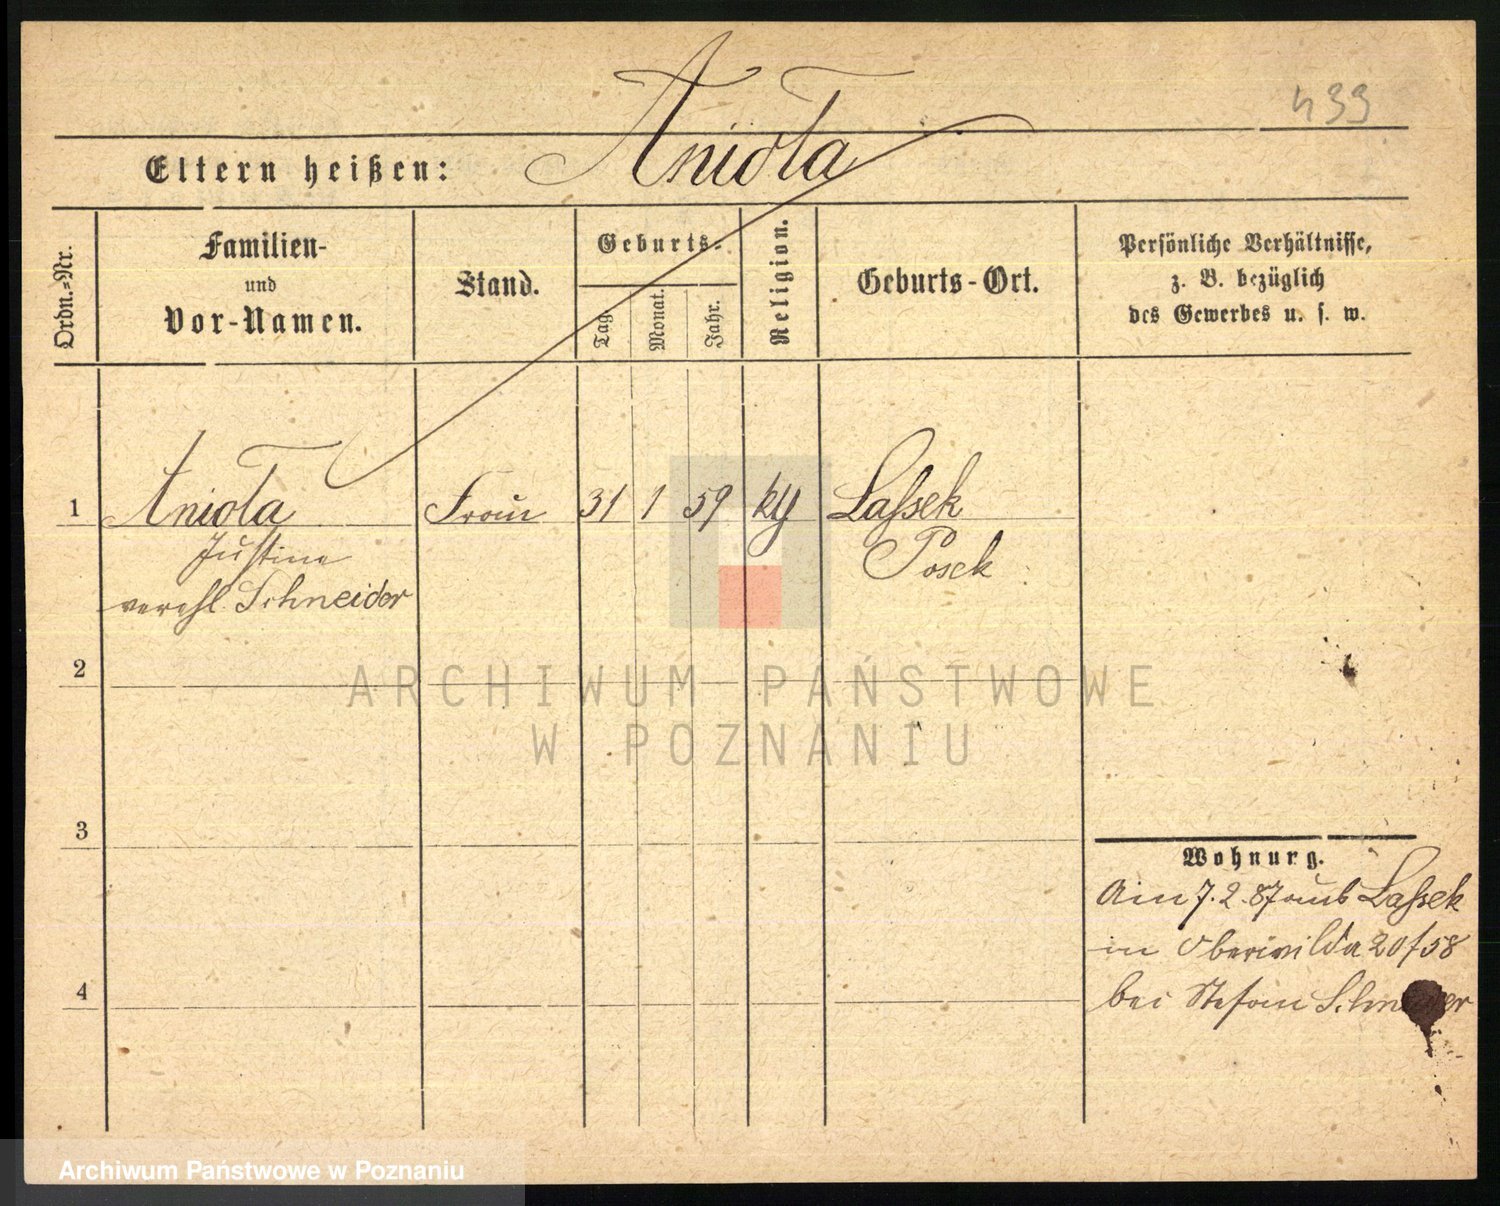 Anioła
433
Eltern heißen:
Ordn.-Nr.
Familien-
und
Vor-Namen.
Stand.
Geburts-
Tag.
Monat.
Jahr.
Religion.
Geburts-Ort.
Persönliche Verhältnisse,
z. B. bezüglich
des Gewerbes u. s. w.
1 Anioła Frau 31 1 59 Laßsek
Justine Posek
verehl. Schneider
2
ARCHIWUM PAŃSTWOWE
W POZNANIU
3
Wohnung.
Am 7.2.87 aus Laßsek
in Oberwilda 20/58
4
bei Stefan Schneider
Archiwum Państwowe w Poznaniu